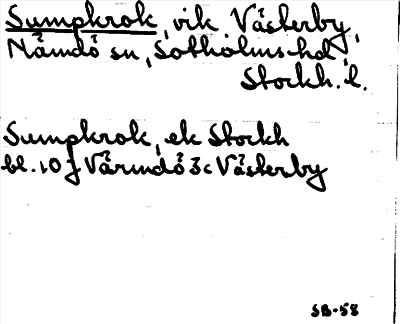 Sumpkrok, vik Västerby,
Nämdö sn, Sotholms hd,
Stockh. l.
Sumpkrok, ek Stockh
bl. 10 j Värmdö 3c Västerby
SB-58